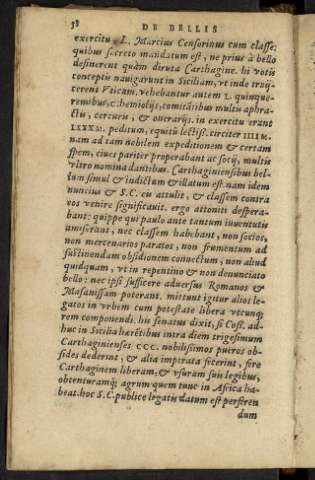 38 DE BELLIS
exercitu, L. Martius Censorinus cum classe:
quibus secreto mandatum est, ne prius à bello
desinerent quàm diruta Carthagine. hi votis
conceptis nauigarunt in Siciliam, vt inde traij-
cerent Vticam. vehebantur autem L. quinque-
remibus, c. hemiolijs, comitãtibus multis aphra-
ctis, cercuris, & onerarijs. in exercitu erant
LXXXM. peditum, equitũ lectiss. circiter IIIIM.
nam ad tam nobilem expeditionem & certam
spem, ciues pariter properabant ac socij, multis
vltro nomina dantibus. Carthaginiensibus bel-
lum simul & indictum & illatum est. nam idem
nuncius & S.C. eis attulit, & classem contra
vos venire significauit. ergo attoniti despera-
bant: quippe qui paulo ante tantum iuuentutis
amiserant, nec classem habebant, non socios,
non mercenarios paratos, non frumentum ad
sustinendam obsidionem conuectum, non aliud
quidquam, vt in repentino & non denunciato
bello: nec ipsi sufficere aduersus Romanos &
Masanissam poterant. mittunt igitur alios le-
gatos in vrbem cum potestate libera vtcunq;
rem componendi. his senatus dixit, si Coss. ad-
huc in Sicilia harẽtibus intra diem trigesimum
Carthaginienses CCC. nobilissimos pueros ob-
sides dederint, & alia imperata fecerint, fore
Carthaginem liberam, & vsuram suis legibus,
obtenturamq; agrum quem tunc in Africa ha-
beat. hoc S.C. publice legatis datum est perferen
dum